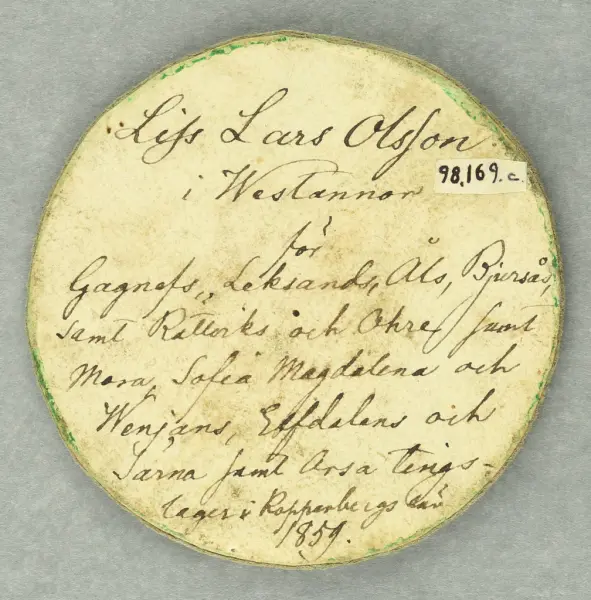 Liss Lars Olsson
98,169.c.
i Westannor
för
Gagnefs, Leksands, Åls, Bjursås,
samt Rättviks och Ohre, samt
Mora, Sofia Magdalena och
Wenjans, Elfdalens och
Särna samt Orsa tings-
lager i Kopparbergs län
1859.